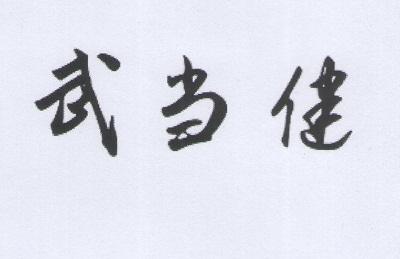 武当健